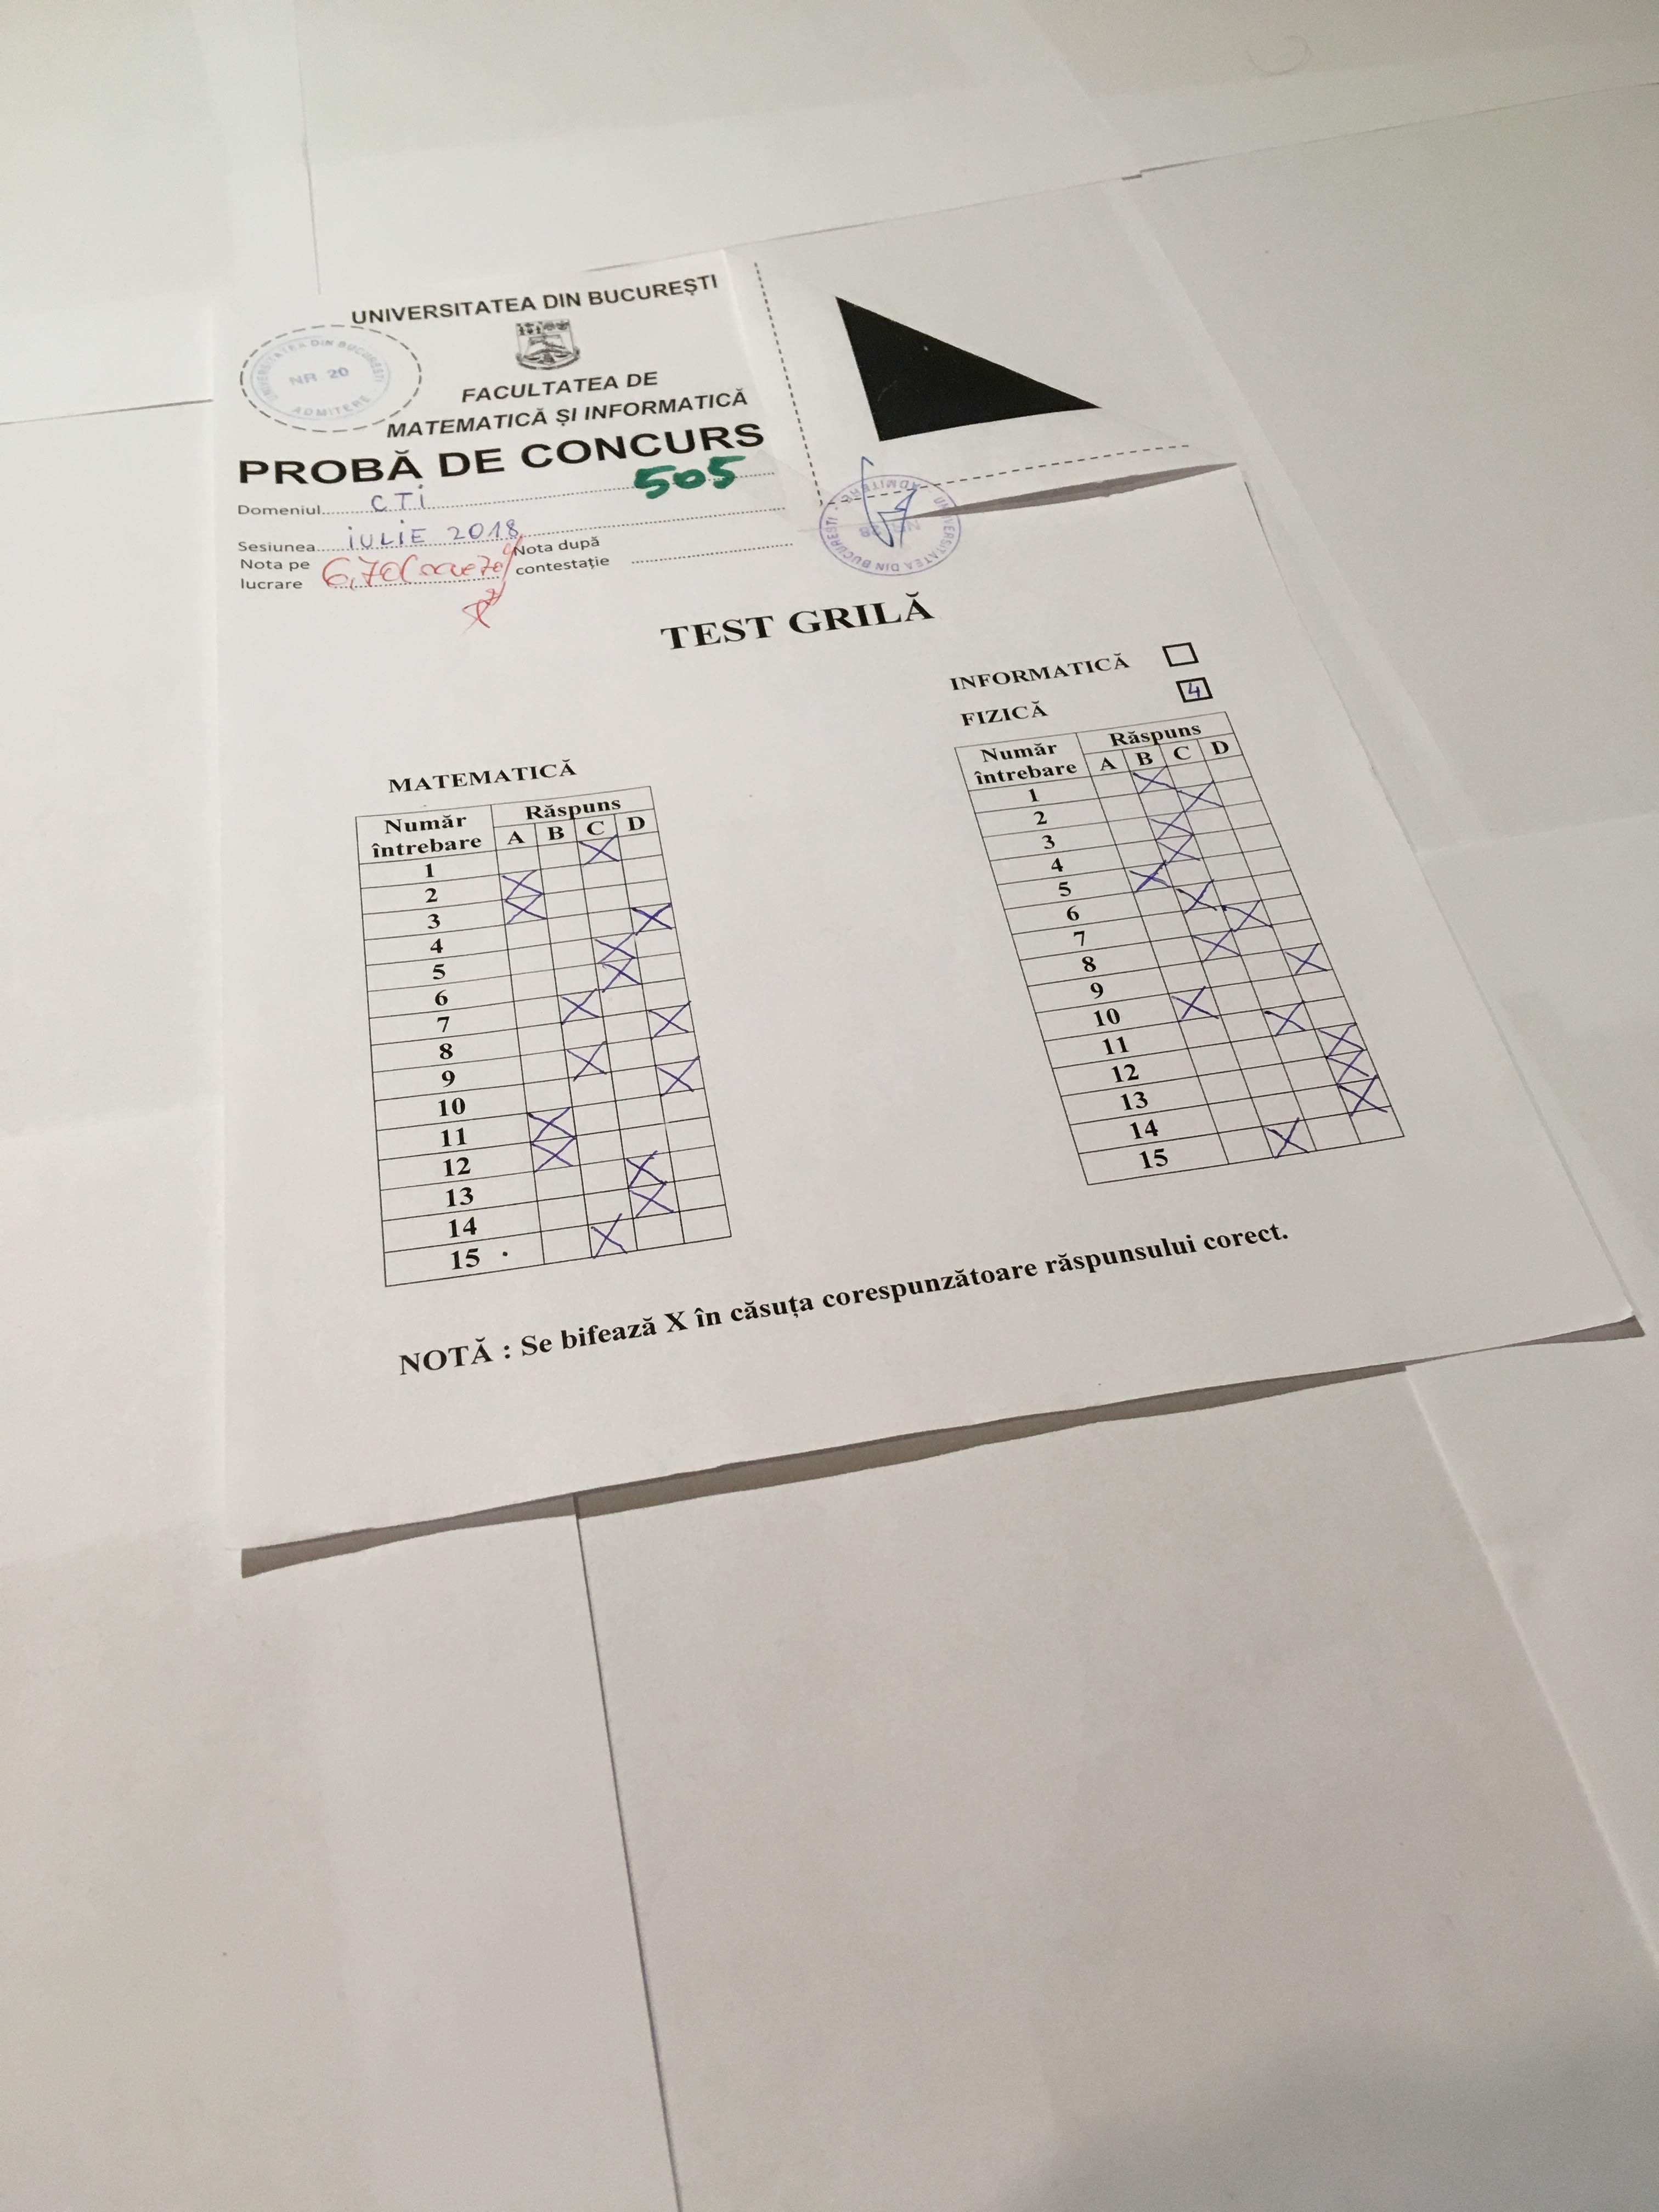 UNIVERSITATEA DIN BUCUREȘTI
UNIVERSITATEA DIN BUCUREȘTI
NR. 20
ADMITERE
FACULTATEA DE
MATEMATICĂ ȘI INFORMATICĂ
PROBĂ DE CONCURS
505
Domeniul CTI
Sesiunea IULIE 2018
Nota pe lucrare 6,70
Nota după contestație
UNIVERSITATEA DIN BUCUREȘTI - ADMITERE
TEST GRILĂ
INFORMATICĂ
FIZICĂ 4
MATEMATICĂ
Număr întrebare Răspuns
A B C D
1 X
2 X
3 X
4 X
5 X
6 X
7 X
8 X
9 X
10 X
11 X
12 X
13 X
14 X
15 X
Număr întrebare Răspuns
A B C D
1 X
2 X
3 X
4 X
5 X
6 X
7 X
8 X
9 X
10 X
11 X
12 X
13 X
14 X
15 X
NOTĂ : Se bifează X în căsuța corespunzătoare răspunsului corect.